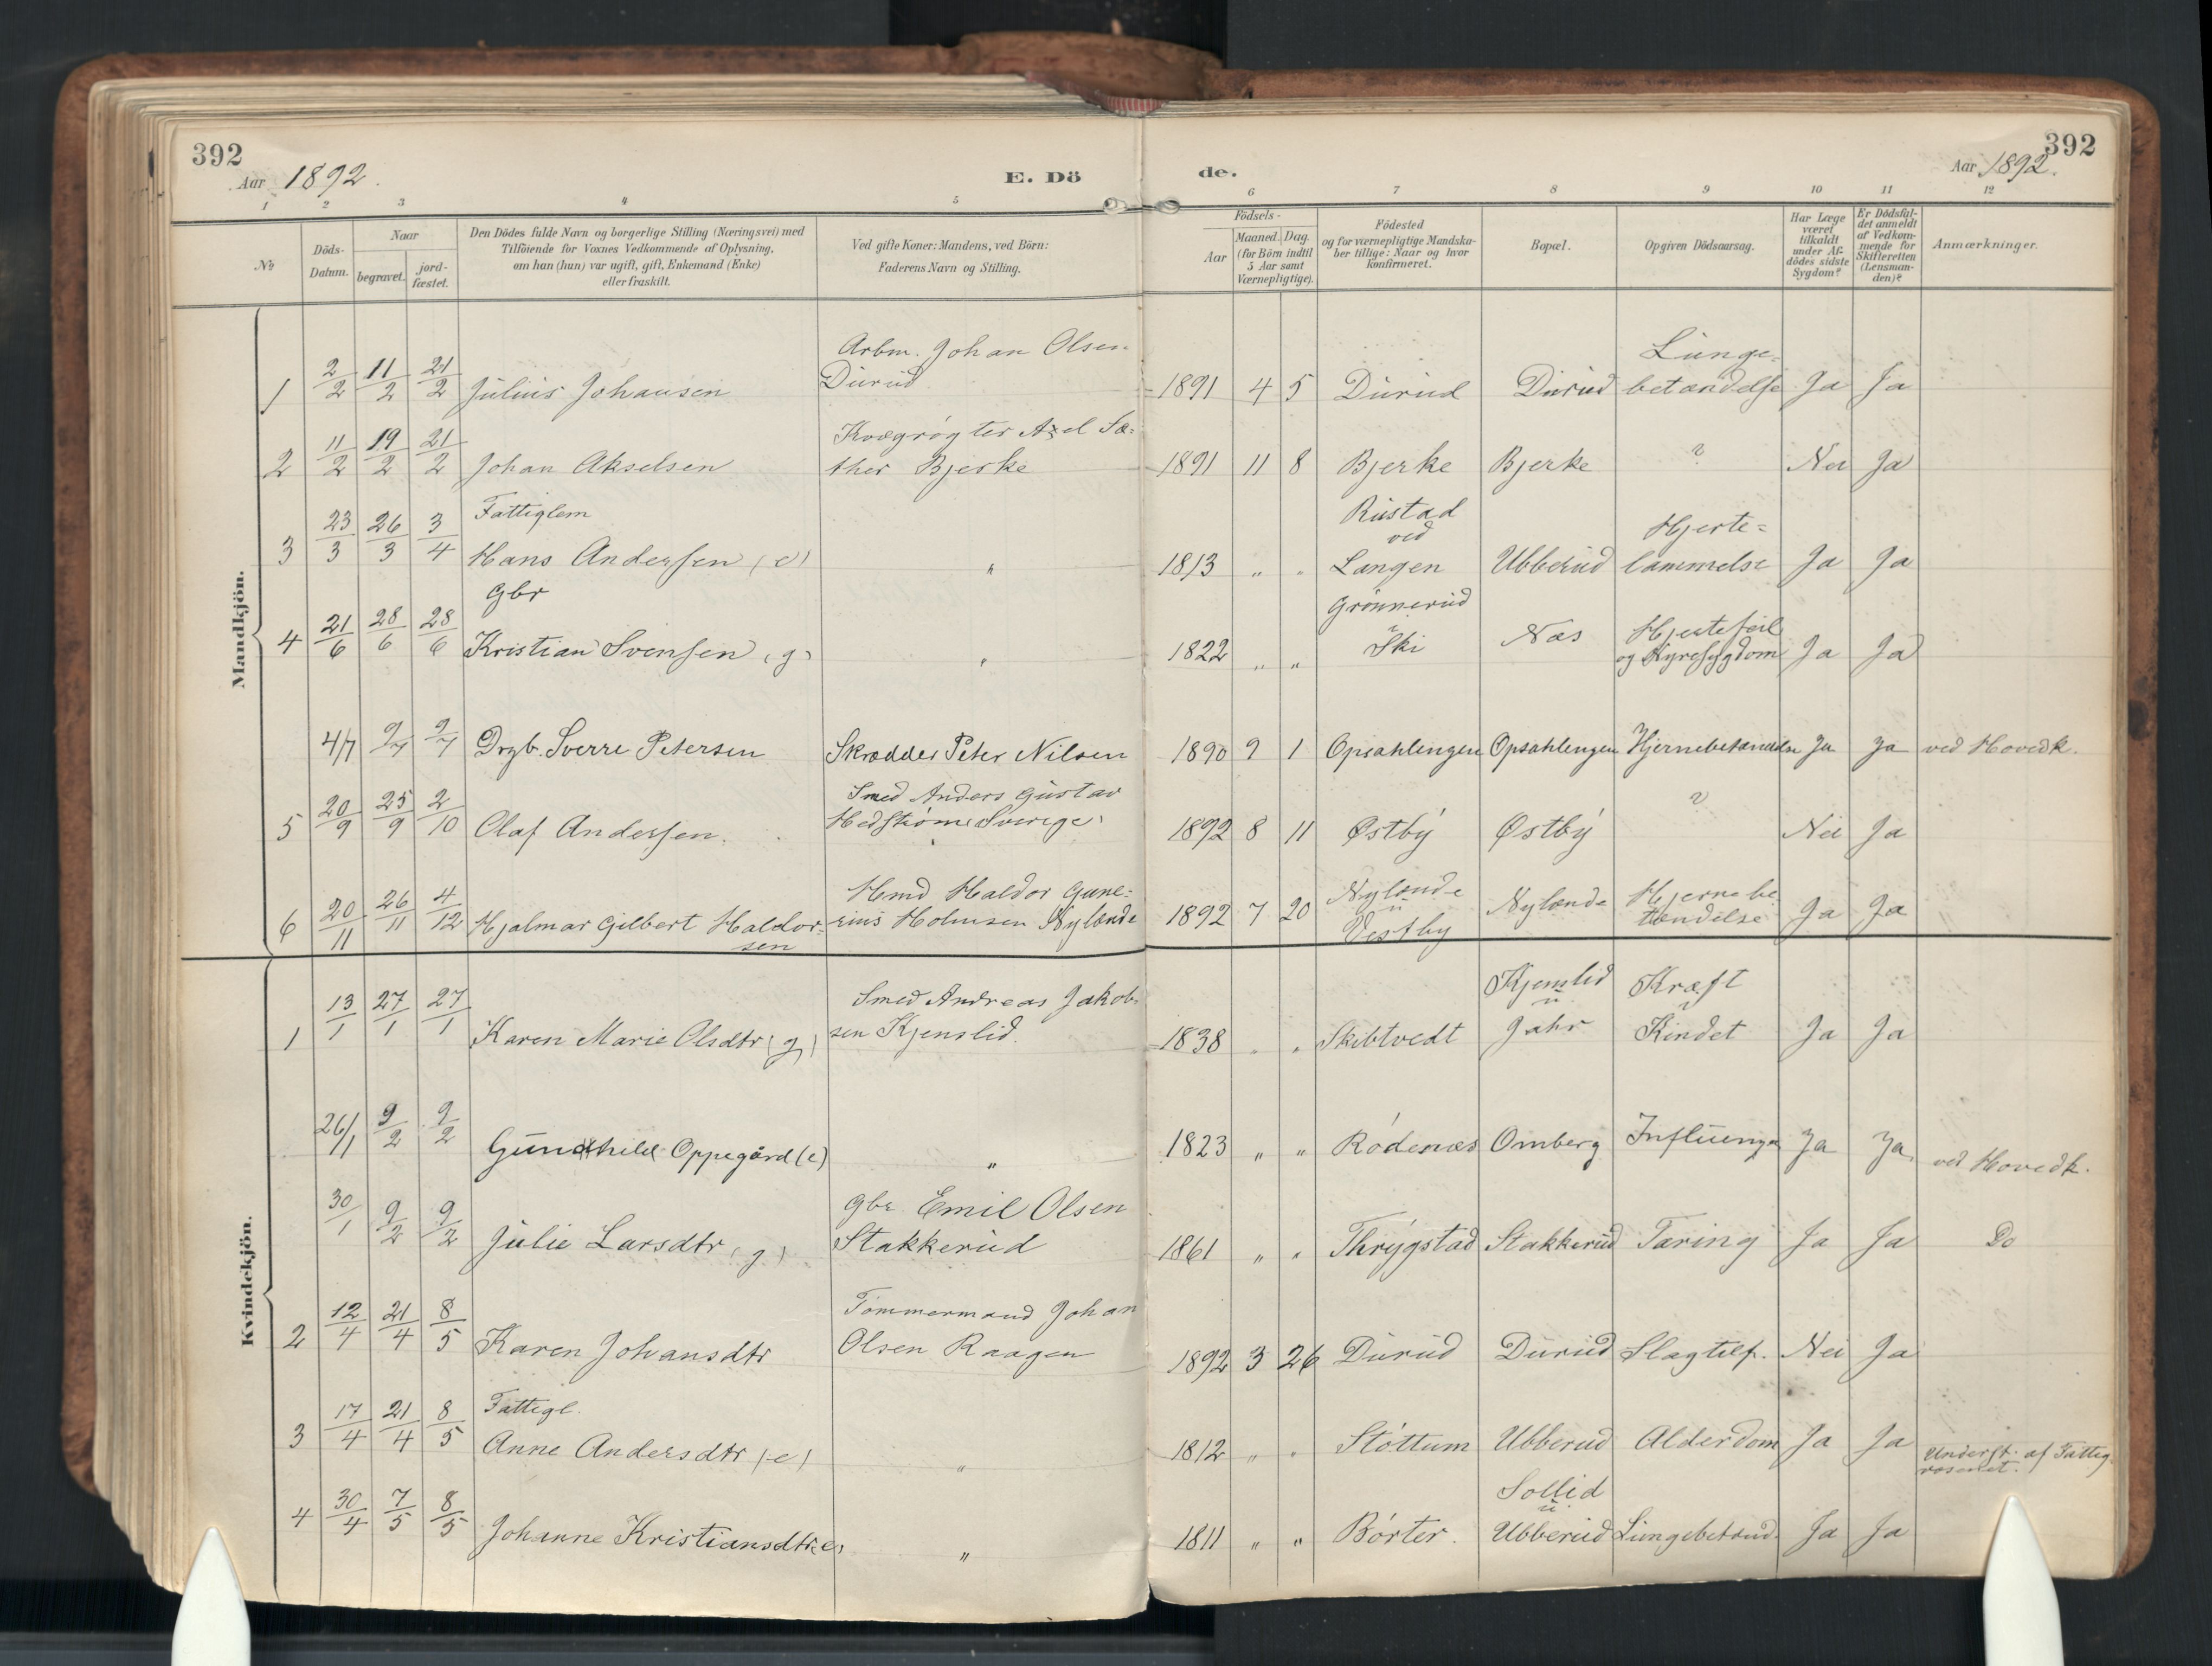 392
Aar 1892.
E. Dö
de.
392
Aar 1892.
1 2 3 4 5 6 7 8 9 10 11 12
№
Döds-
Datum.
Naar
begravet.
jord-
fæstet.
Den Dödes fulde Navn og borgerlige Stilling (Næringsvei) med
Tilföiende for Voxnes Vedkommende af Oplysning,
om han (hun) var ugift, gift, Enkemand (Enke)
eller fraskilt.
Ved gifte Koner: Mandens, ved Börn:
Faderens Navn og Stilling.
Födsels-
Aar
Maaned. Dag.
(for Börn indtil
5 Aar samt
Værnepligtige).
Födested
og for værnepligtige Mandska-
ber tillige: Naar og hvor
konfirmeret.
Bopæl.
Opgiven Dödsaarsag.
Har Læge
været
tilkaldt
under Af-
dödes sidste
Sygdom?
Er Dödsfal-
det anmeldt
af Vedkom-
mende for
Skifteretten
(Lensman-
den)?
Anmærkninger.
Mandkjön.
Arbm. Johan Olsen Lunge-
1 2/2 11/2 21/2 Julius Johansen Durud 1891 4 5 Durud Durud betændelse Ja Ja
Kvægrøgter Axel Sæ-
2 11/2 19/2 21/2 Johan Akselsen ther Bjerke 1891 11 8 Bjerke Bjerke ? Nei Ja
Fattiglem Rustad
ved Hjerte-
3 23/3 26/3 3/4 Hans Andersen (e) " 1813 " " Langen Ubberud lammelse Ja Ja
Gbr Grønnerud
i Hjertefeil
4 21/6 28/6 28/6 Kristian Svensen (g) " 1822 " " Ski Næs og Nyresygdom Ja Ja
4/7 9/7 9/7 Drgb. Sverre Petersen Skrædder Peter Nilsen 1890 9 1 Opsahlengen Opsahlengen Hjernebetændelse Ja Ja ved Hovedk.
Smed Anders Gustav
5 20/9 25/9 2/10 Olaf Andersen. Hedstrøm Sverige 1892 8 11 Østby Østby ? Nei Ja
Hmd Haldor Gune- Nylænde Hjernebe
6 20/11 26/11 4/12 Hjalmar Gilbert Haldor- rius Holmsen Nylænde 1892 7 20 u Nylænde tændelse Ja Ja
sen Vestby
Kvindekjön.
Smed Andreas Jakob- Kjenslid Kræft
u i
1 13/1 27/1 27/1 Karen Marie Olsdtr (g) sen Kjenslid. 1838 " " Skibtvedt Jahr Kindet Ja Ja
26/1 9/2 9/2 Gunhild Oppegård (e) " 1823 " " Rødenæs Omberg Influenza Ja Ja ved Hovedk.
Gbr. Emil Olsen
30/1 9/2 9/2 Julie Larsdtr (g) Stakkerud 1861 " " Thrygstad Stakkerud Tæring Ja Ja Do
Tømmermand Johan
2 12/4 21/4 8/5 Karen Johansdtr Olsen Raagen 1892 3 26 Durud Durud Slagtilf. Nei Ja
Fattigl.
3 17/4 21/4 8/5 Anne Andersdtr (e) " 1812 " " Støttum Ubberud Alderdom Ja Ja Underst. af Fattig-
væsenet.
Sollid
u
4 30/4 7/5 8/5 Johanne Kristiansdtr (e) " 1811 " " Børter. Ubberud Lungebetænd. Ja Ja